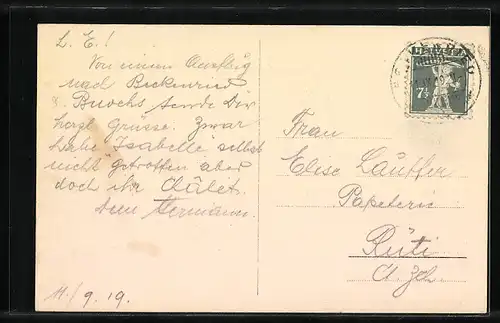 L. E.!
Von einem Ausflug
nach Beckenried
& Buochs sende Dir
herzl. Grüsse. Zwar
habe Isabelle selbst
nicht getroffen aber
doch ihr Châlet.
Dein Hermann.
11./9.19.
HELVETIA
7½
Frau
Elise Läuffer
Papeterie
Rüti
Ct. Zch.